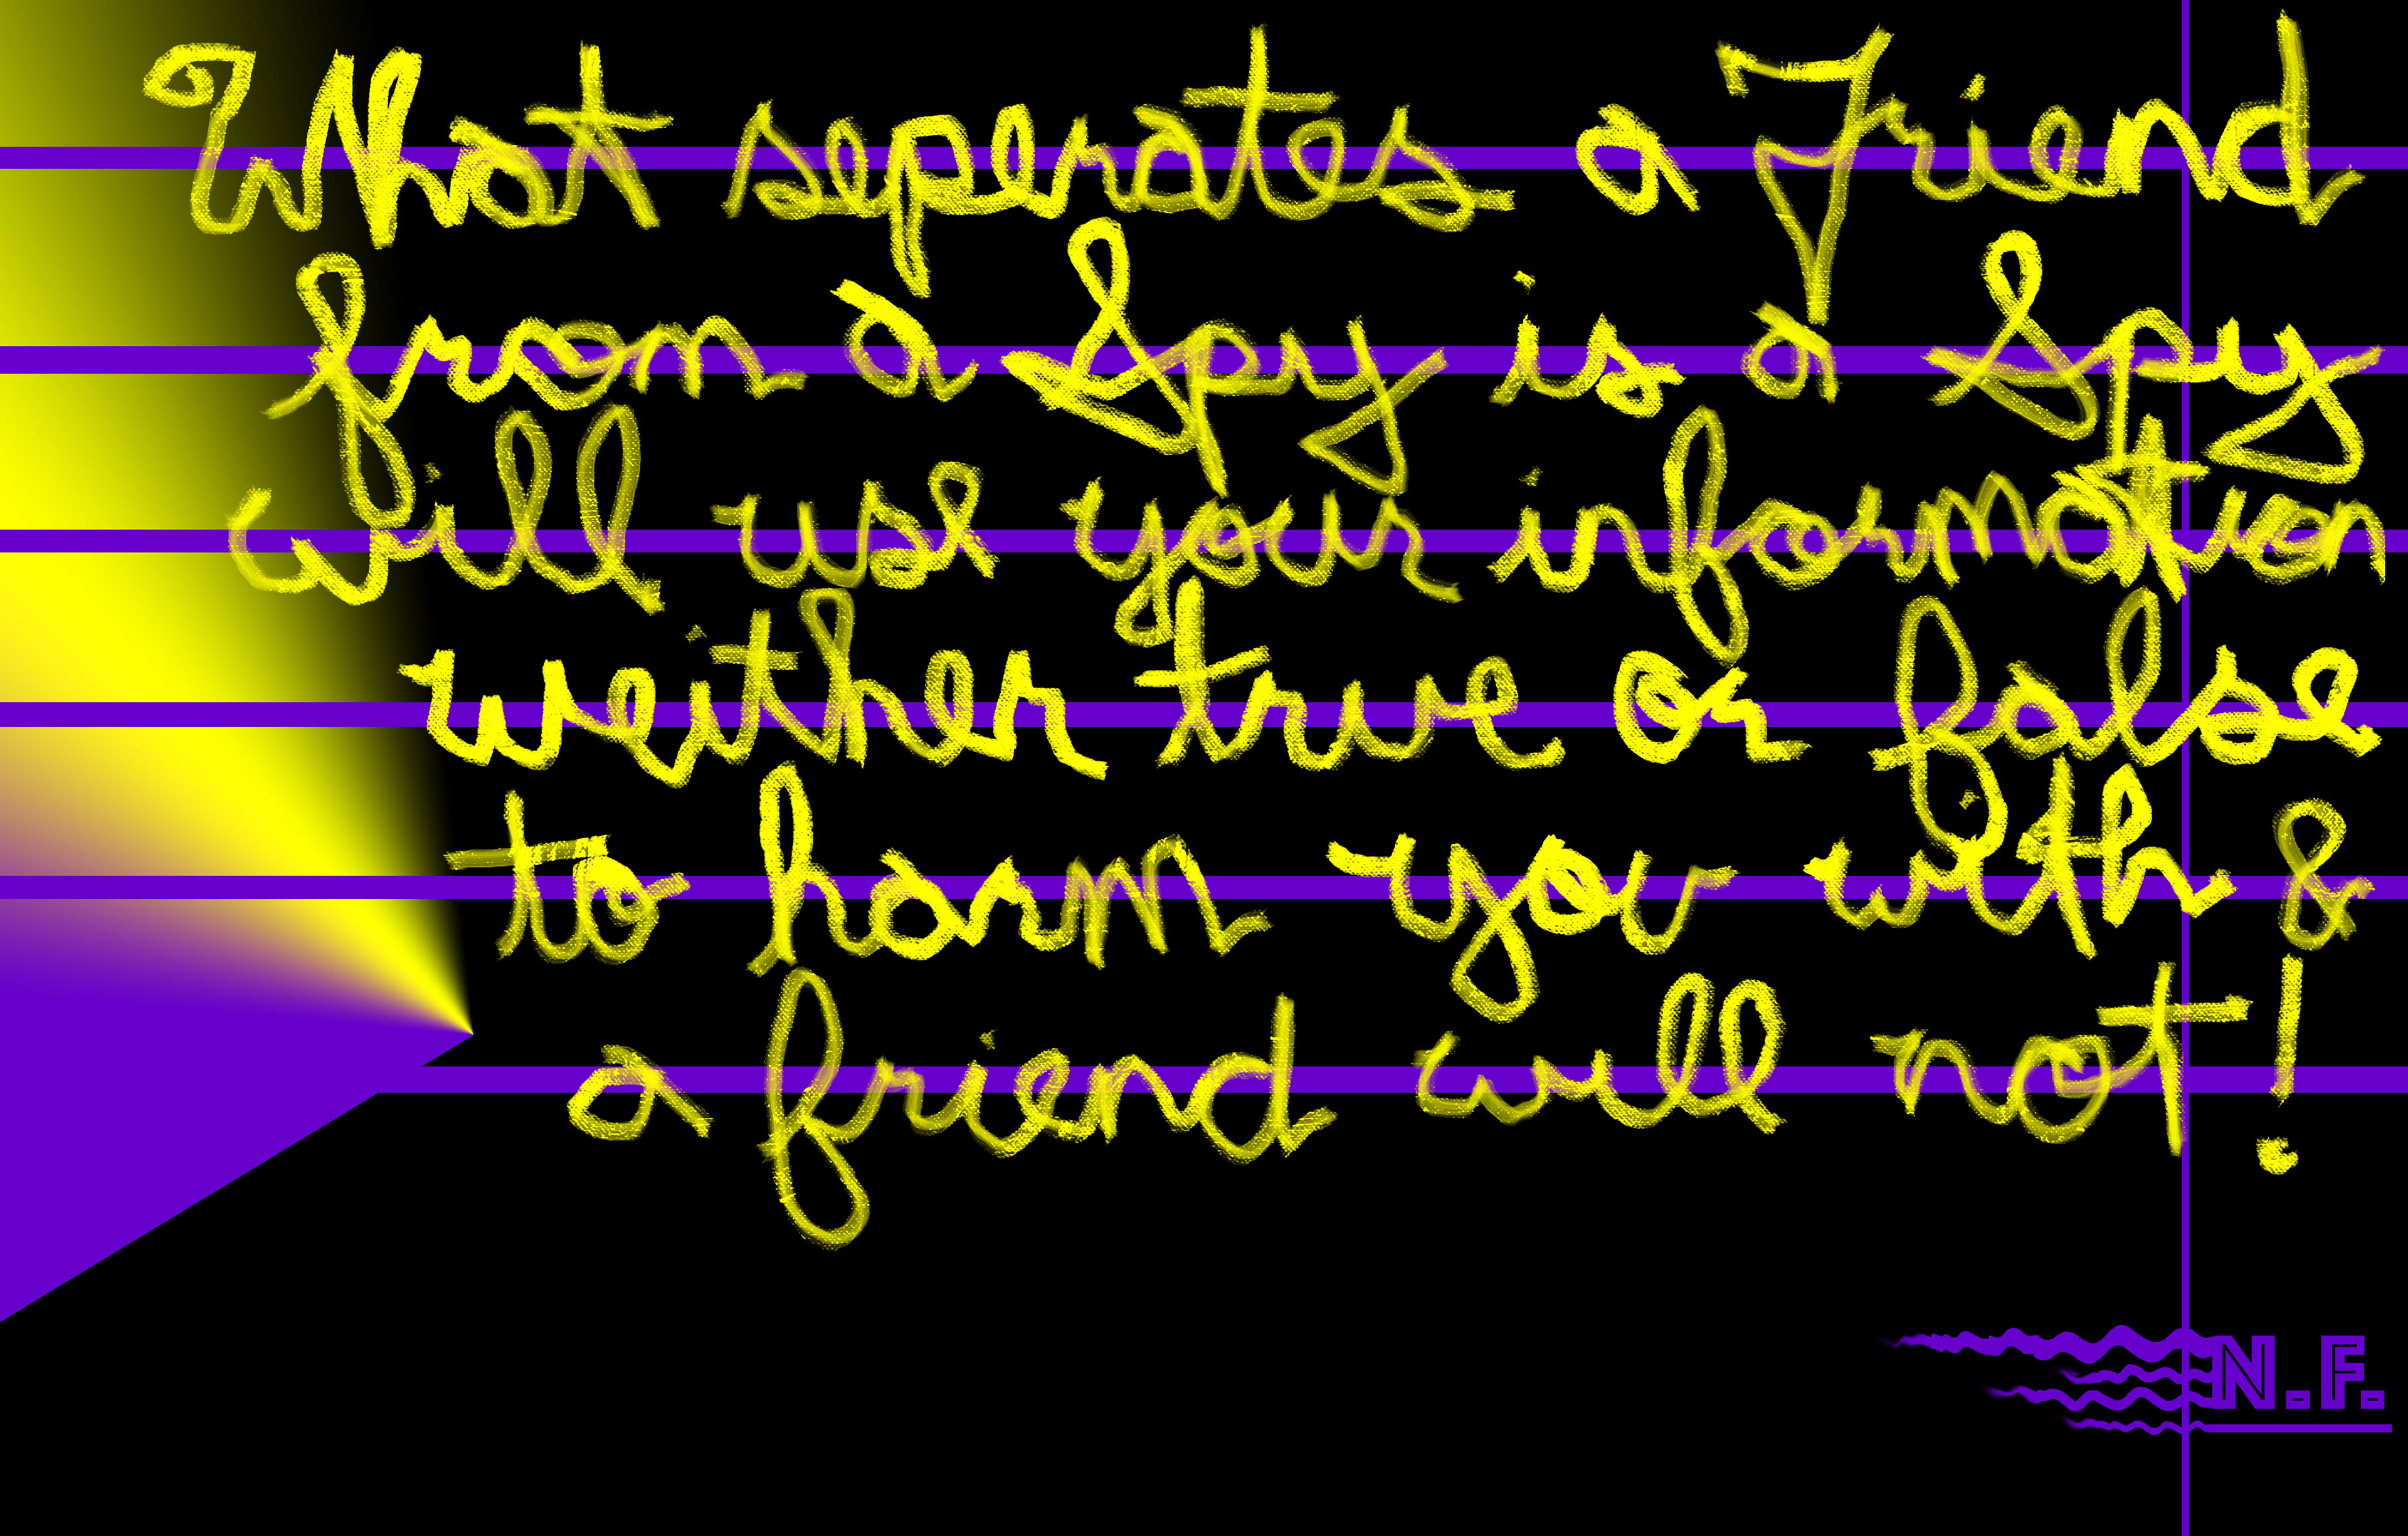 What seperates a Friend
from a Spy is a Spy
will use your information
weither true or false
to harm you with &
a friend will not!
N.F.